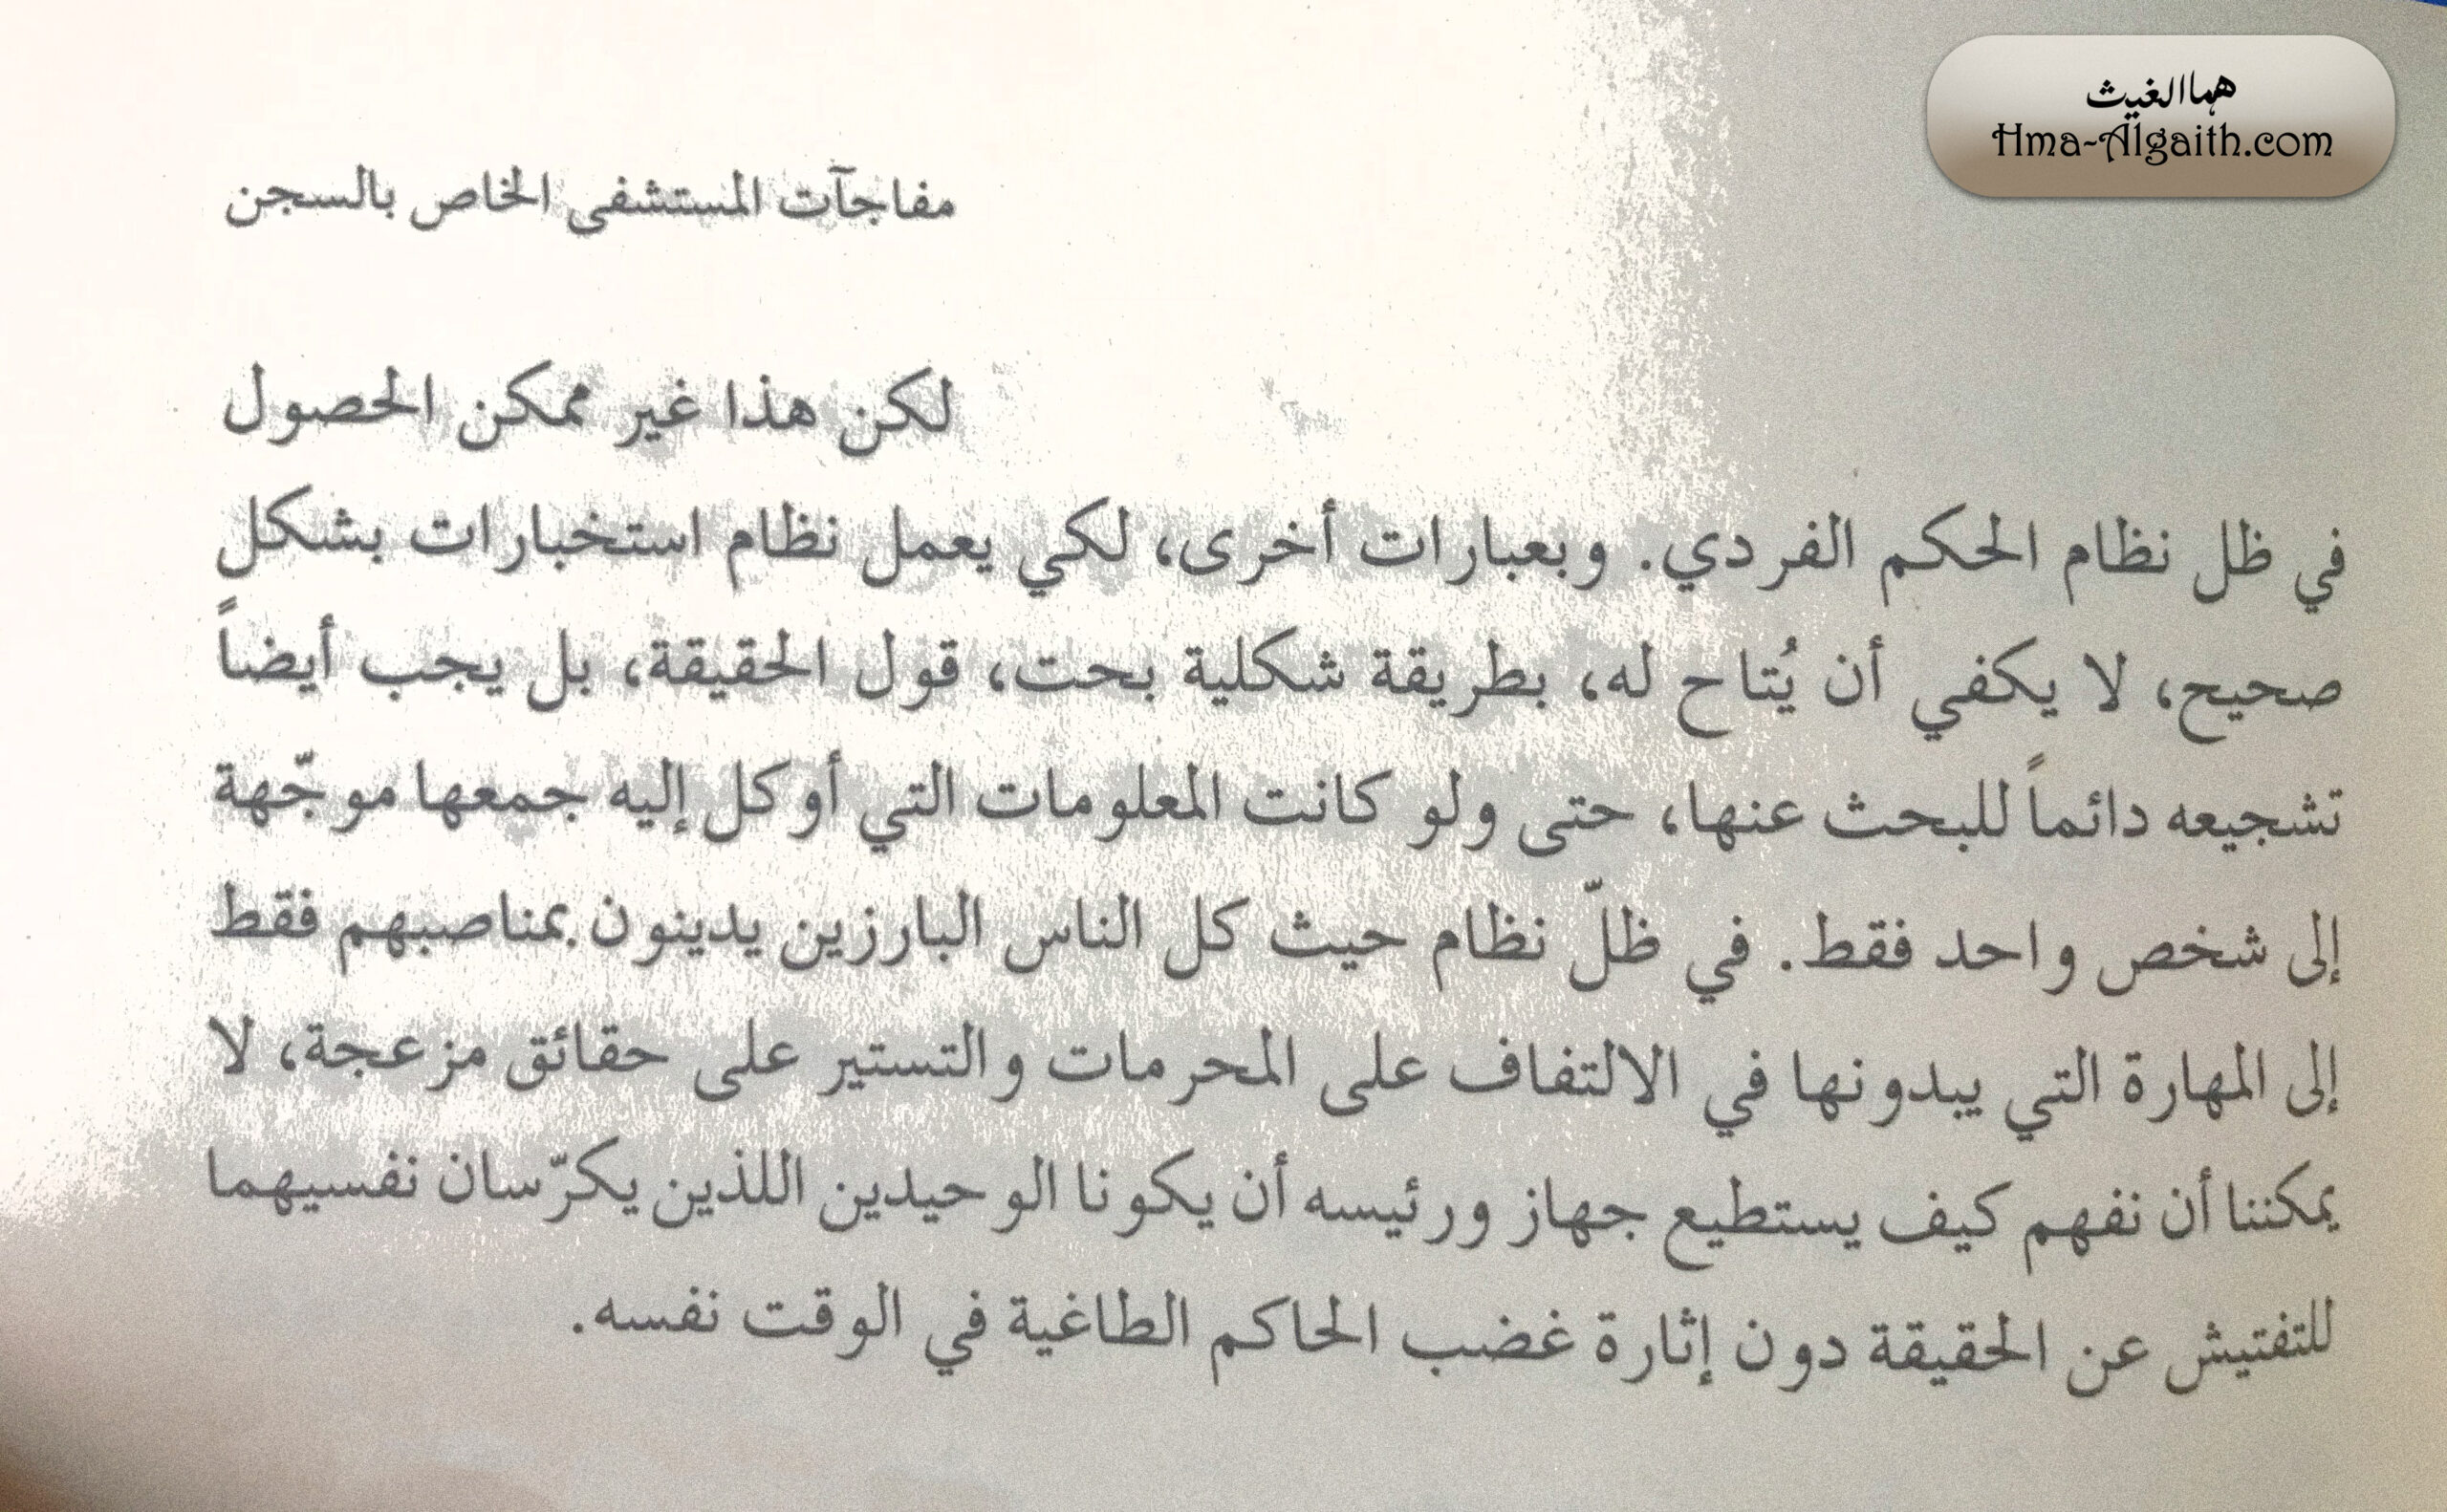 هما الغيث
Hma-Algaith.com
مفاجآت المستشفى الخاص بالسجن
لكن هذا غير ممكن الحصول
في ظل نظام الحكم الفردي. وبعبارات أخرى، لكي يعمل نظام استخبارات بشكل
صحيح، لا يكفي أن يُتاح له، بطريقة شكلية بحت، قول الحقيقة، بل يجب أيضاً
تشجيعه دائماً للبحث عنها، حتى ولو كانت المعلومات التي أوكل إليه جمعها موجّهة
إلى شخص واحد فقط. في ظلّ نظام حيث كل الناس البارزين يدينون بمناصبهم فقط
إلى المهارة التي يبدونها في الالتفاف على المحرمات والتستير على حقائق مزعجة، لا
يمكننا أن نفهم كيف يستطيع جهاز ورئيسه أن يكونا الوحيدين اللذين يكرّسان نفسيهما
للتفتيش عن الحقيقة دون إثارة غضب الحاكم الطاغية في الوقت نفسه.